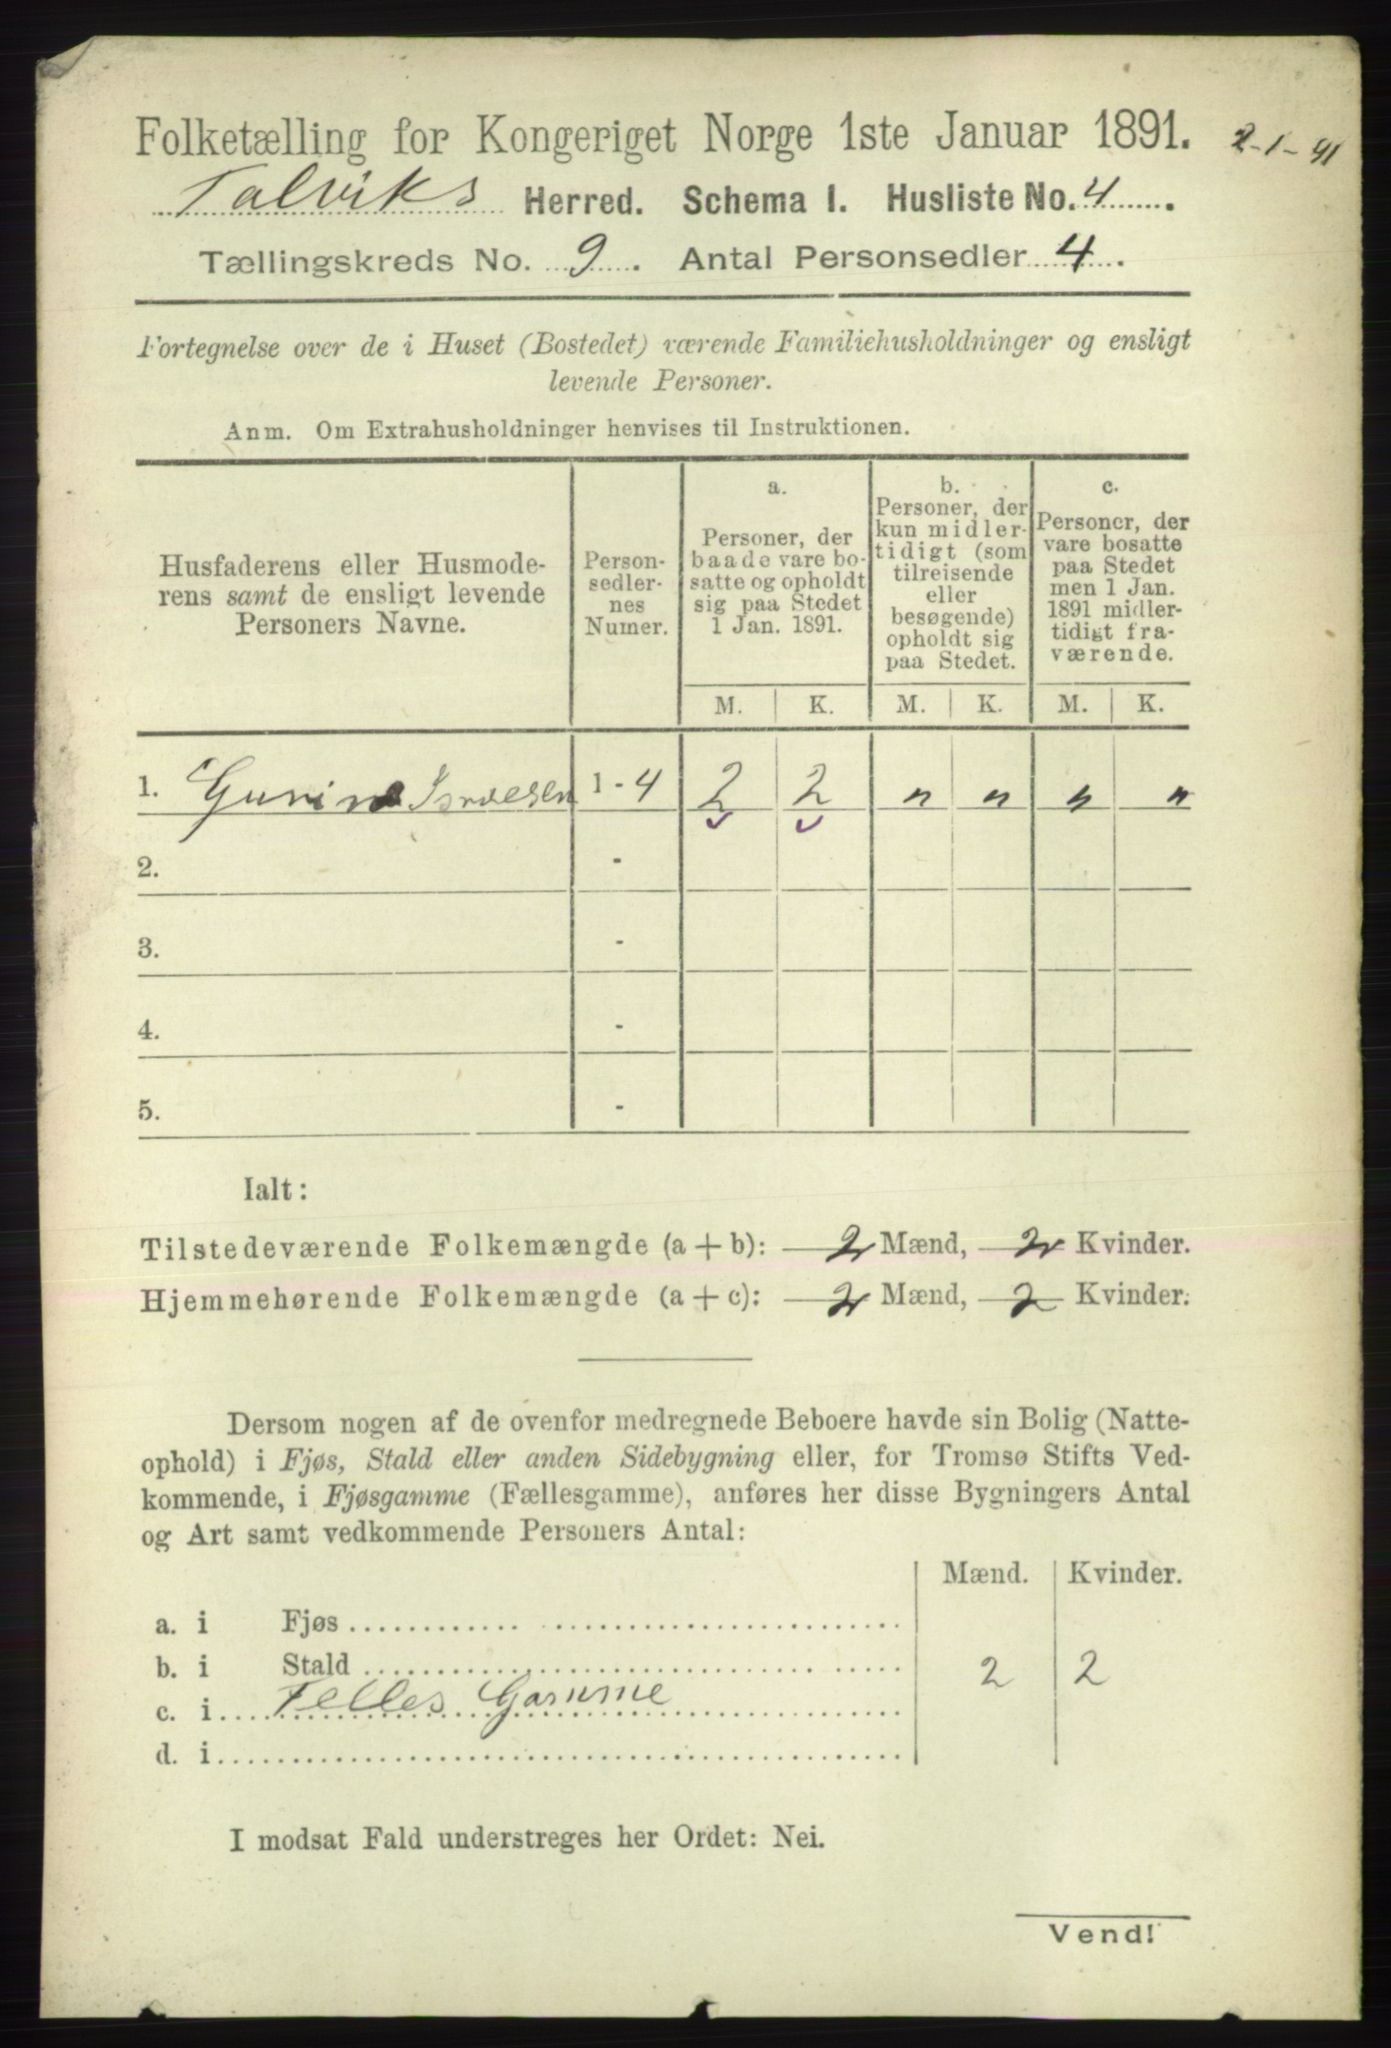 Folketælling for Kongeriget Norge 1ste Januar 1891. 2-1-91
Talviks Herred. Schema I. Husliste No. 4
Tællingskreds No. 9. Antal Personsedler 4.
Fortegnelse over de i Huset (Bostedet) værende Familiehusholdninger og ensligt
levende Personer.
Anm. Om Extrahusholdninger henvises til Instruktionen.
Husfaderens eller Husmode-
rens samt de ensligt levende
Personers Navne.
Person-
sedler-
nes
Numer.
a.
Personer, der
baade vare bo-
satte og opholdt
sig paa Stedet
1 Jan. 1891.
b.
Personer, der
kun midler-
tidigt (som
tilreisende
eller
besøgende)
opholdt sig
paa Stedet.
c.
Personer, der
vare bosatte
paa Stedet
men 1 Jan.
1891 midler-
tidigt fra-
værende.
M. K. M. K. M. K.
1. 1 - 4 2 2 " " " "
2. -
3. -
4. -
5. -
Ialt:
Tilstedeværende Folkemængde (a + b): 2 Mænd, 2 Kvinder.
Hjemmehørende Folkemængde (a + c): 2 Mænd, 2 Kvinder.
Dersom nogen af de ovenfor medregnede Beboere havde sin Bolig (Natte-
ophold) i Fjøs, Stald eller anden Sidebygning eller, for Tromsø Stifts Ved-
kommende, i Fjøsgamme (Fællesgamme), anføres her disse Bygningers Antal
og Art samt vedkommende Personers Antal:
Mænd. Kvinder.
a. i Fjøs
b. i Stald 2 2
c. i Felles Gamme
d. i
I modsat Fald understreges her Ordet: Nei.
Vend!